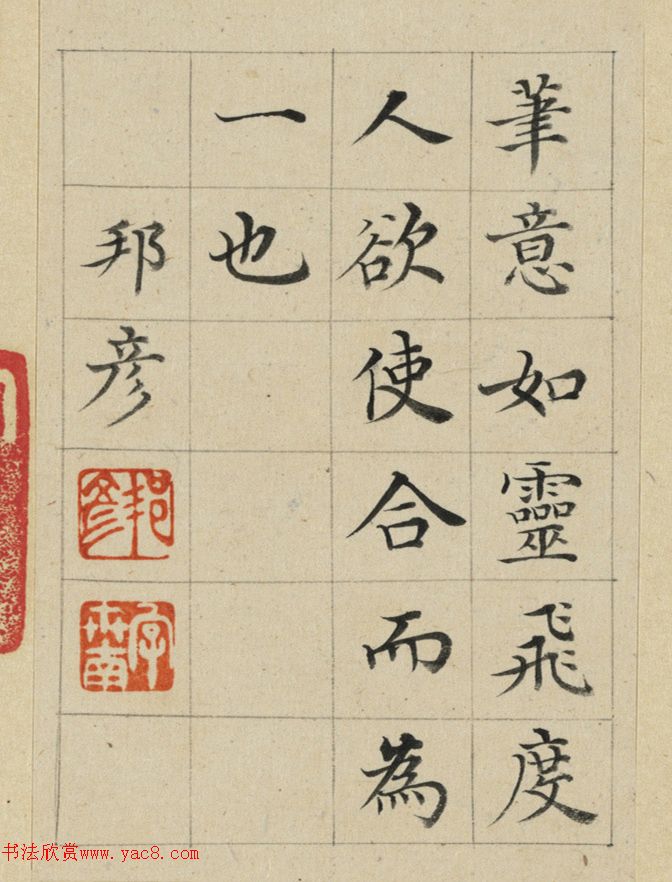 筆意如靈飛度
人欲使合而為
一也
邦彥
邦彥
字世南
书法欣赏www.yac8.com